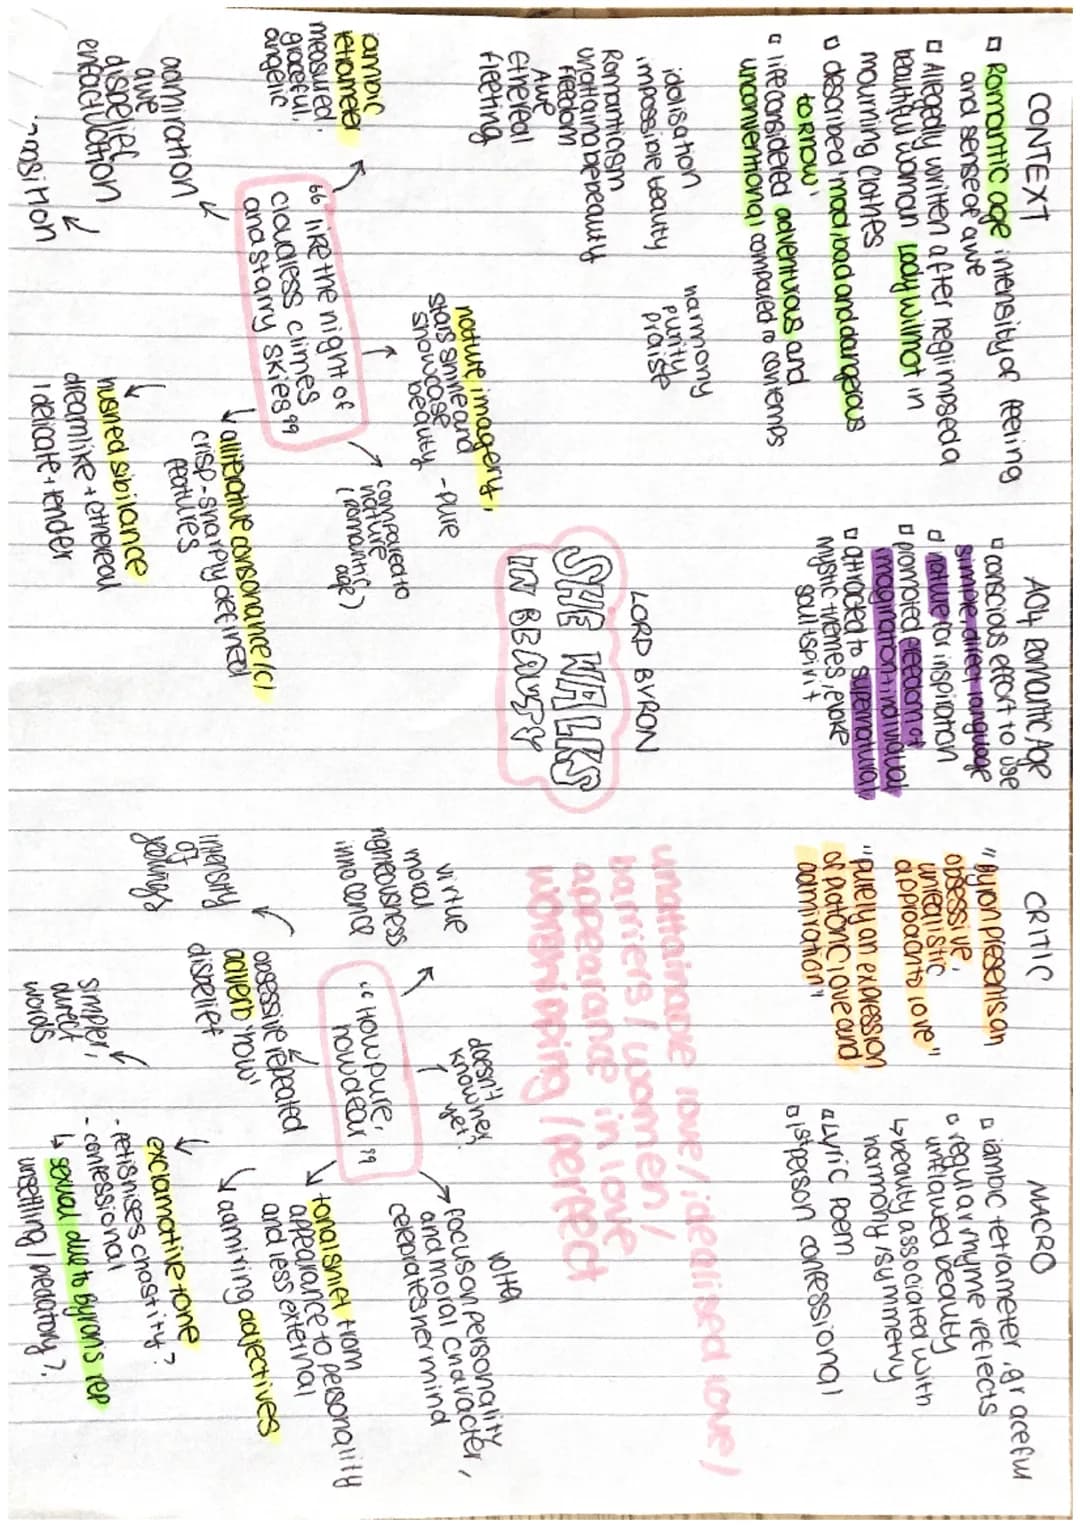 CONTEXT
▫ Romantic age intensity of feeling
and sense of awe
▫ Allegedly written after he glimpsed a
beautiful woman lady wilmot in
mourning clothes
▫ described 'mad, bad and dangerous
to know'
▫ life considered adventurous and
unconventional compared to contemps
AO4 Romantic Age
▫ conscious effort to use
simple, direct language
▫ nature for inspiration
▫ promoted freedom of
imagination + individual
▫ attracted to supernatural,
mystic themes, evoke
soul + spirit
CRITIC
"Byron presents an
obsessive,
unrealistic
approach to love"
"purely an expression
of platonic love and
admiration"
MACRO
▫ iambic tetrameter, graceful
▫ regular rhyme reflects
unflawed beauty
↳ beauty associated with
harmony / symmetry
▫ Lyric poem
▫ 1st person confessional
idolisation
impossible beauty
Romanticism
unattainable beauty
freedom
Awe
Ethereal
fleeting
harmony
purity
praise
LORD BYRON
SHE WALKS
IN BEAUTY
unattainable love / idealised love /
barriers / women /
appearance in love
worshipping / perfect
iambic
tetrameter
measured,
graceful,
angelic
nature imagery,
stars shine and
showcase
beauty - pure
compared to
nature
(romantic
age)
"like the night of
cloudless climes
and starry skies"
admiration
awe
disbelief
alliterative consonance /c/
crisp - sharply defined
features
hushed sibilance
dreamlike + ethereal
/ delicate + tender
virtue
moral
righteousness
innocence
doesn't
know her
yet?
volta
focus on personality
and moral character,
celebrates her mind
"How pure,
how dear"
tonal shift from
appearance to personality
and less external
admiring adjectives
obsessive repeated
adverb 'how'
disbelief
intensity
of
feelings
simpler,
direct
words
exclamative tone
- fetishises chastity?
- confessional
↳ sexual due to Byron's rep
unsettling / predatory?